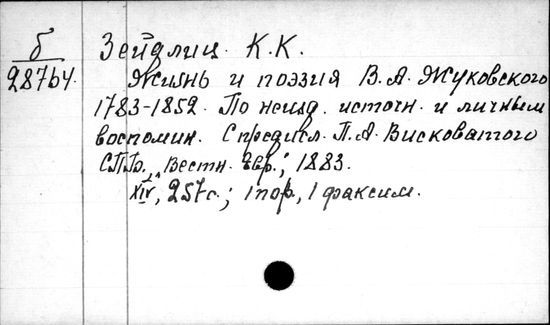 б
28764.
Зейдлиц. К.К.
Жизнь и поэзия В.А. Жуковского
1783-1852. По неизд. источн. и личным
воспомин. С предисл. П.А. Висковатого
СПб., "Вестн. Евр."; 1883.
XIV, 257с.; 1 пор., 1 факсим.